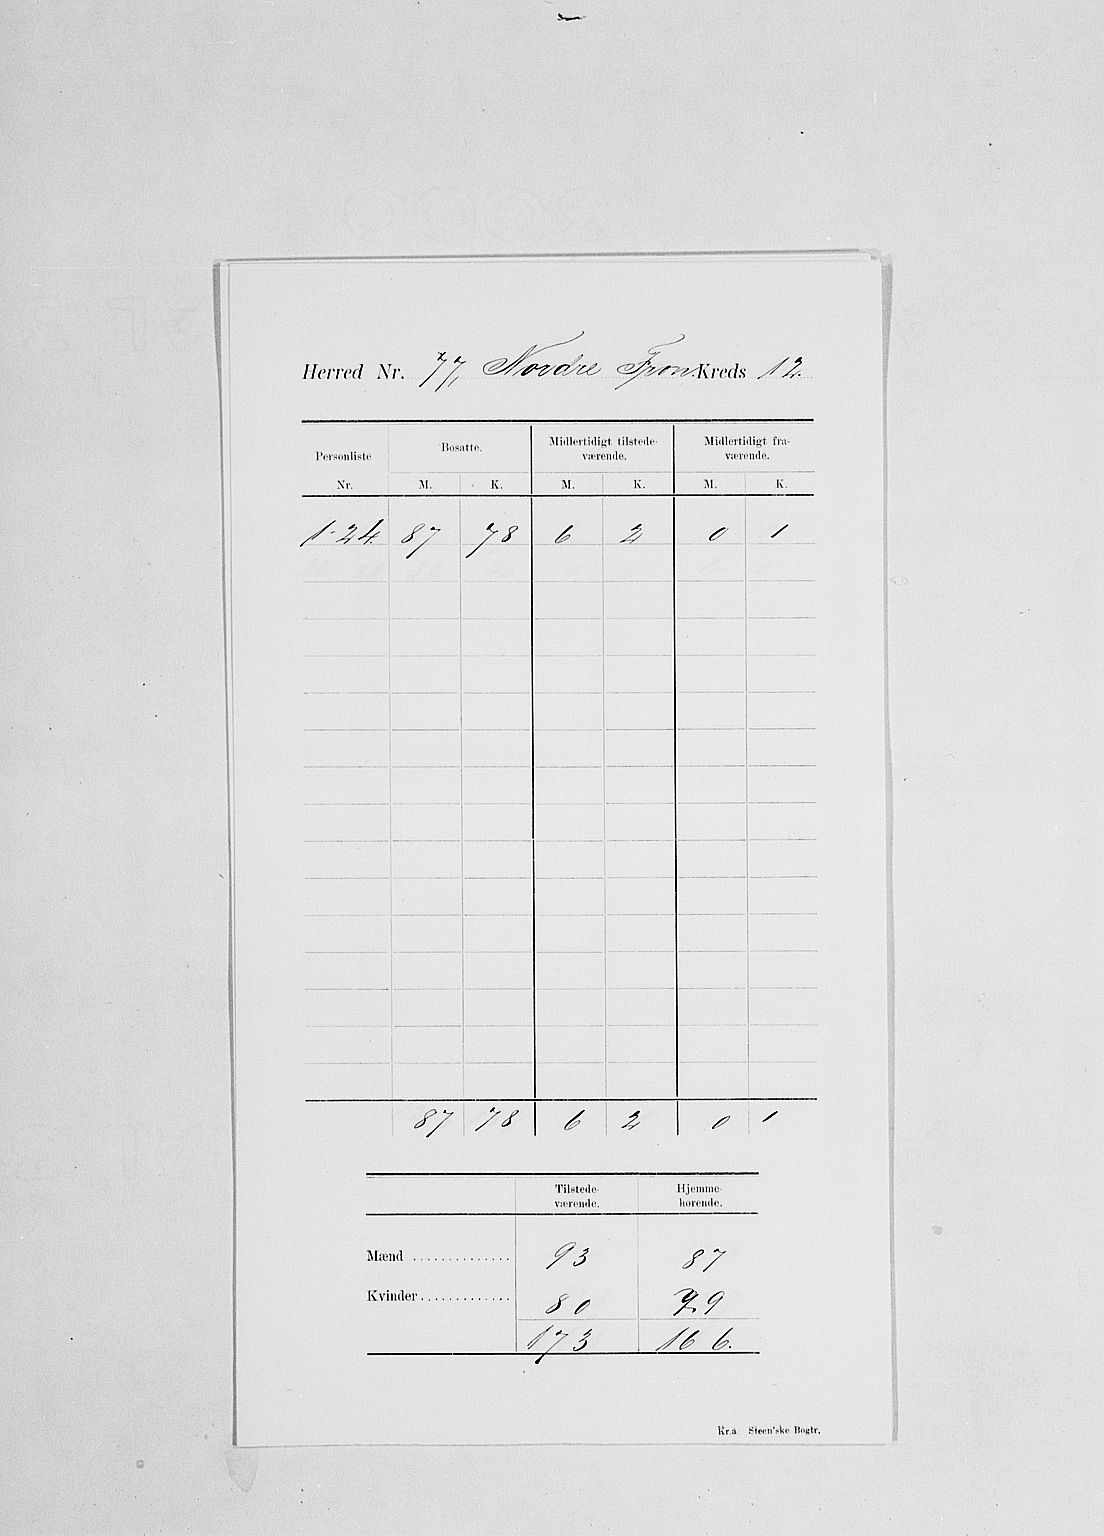 Herred Nr. 77, Nordre Fron. Kreds 12.
Personliste Bosatte. Midlertidigt tilstede- Midlertidigt fra-
værende. værende.
Nr. M. K. M. K. M. K.
1-24. 87 78 6 2 0 1
87 78 6 2 0 1
Tilstede- Hjemme-
værende. hørende.
Mænd .............. 93 87
Kvinder............. 80 79
173 166.
Kr.a. Steen'ske Bogtr.